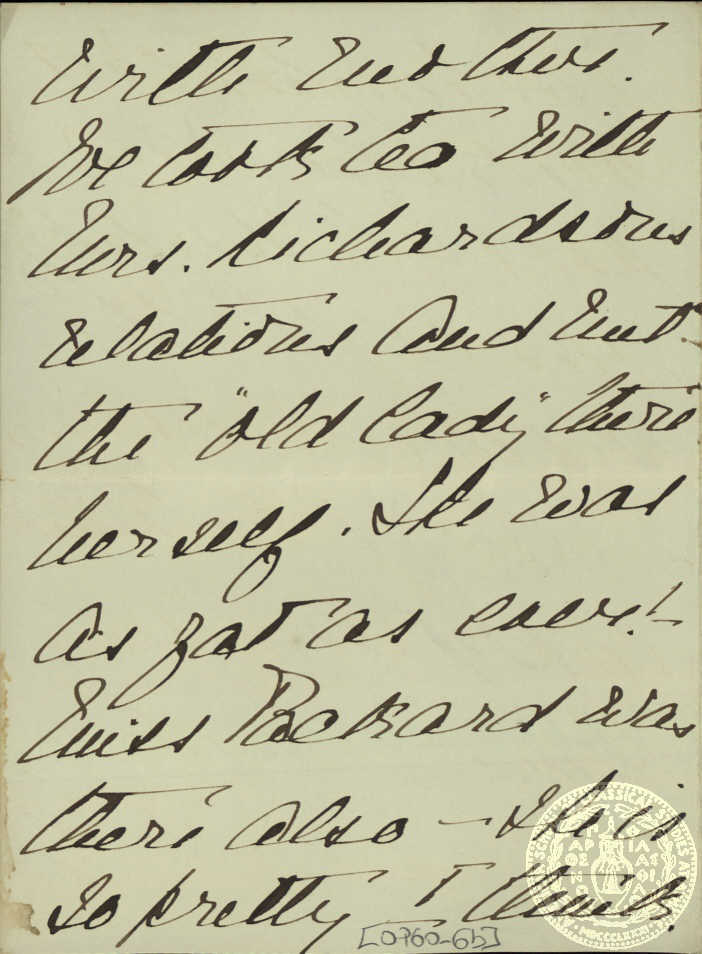 with mother.
We took tea with
Mrs. Richardsons
relations and met
the "old lady" there
herself. She was
as fat as ever! –
Miss Packard was
there also – She is
so pretty I think.
[0760-6b]